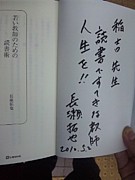 若い教師のための
読書術
長瀬拓也
稲吉先生
読書ですてきな教師
人生を!!
長瀬拓也
2010.5.2